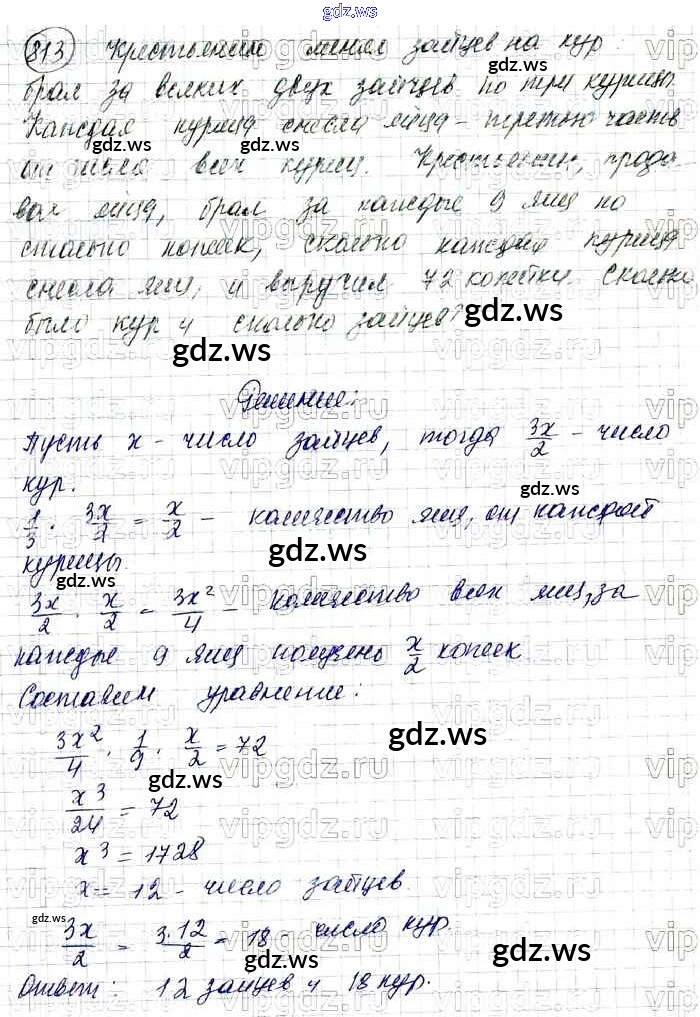 gdz.ws
813 Крестьянин менял зайцев на кур:
брал за всяких двух зайцев по три курицы.
Каждая курица снесла яйца - третью часть
от числа всех куриц. Крестьянин, прода-
вая яйца, брал за каждые 9 яиц по
столько копеек, сколько каждая курица
снесла яиц, и выручил 72 копейки. Сколько
было кур и сколько зайцев?
gdz.ws gdz.ws
Решение:
Пусть x - число зайцев, тогда 3x/2 - число
кур.
gdz.ws
1/3 · 3x/2 = x/2 - количество яиц, от каждой
курицы.
gdz.ws
3x/2 · x/2 = 3x²/4 - количество всех яиц, за
каждые 9 яиц получено x/2 копеек
Составим уравнение:
3x²/4 · 1/9 · x/2 = 72
gdz.ws
gdz.ws
x³/24 = 72
x³ = 1728
x = 12 - число зайцев.
gdz.ws
3x/2 = 3·12/2 = 18 - число кур.
gdz.ws
Ответ: 12 зайцев и 18 кур.